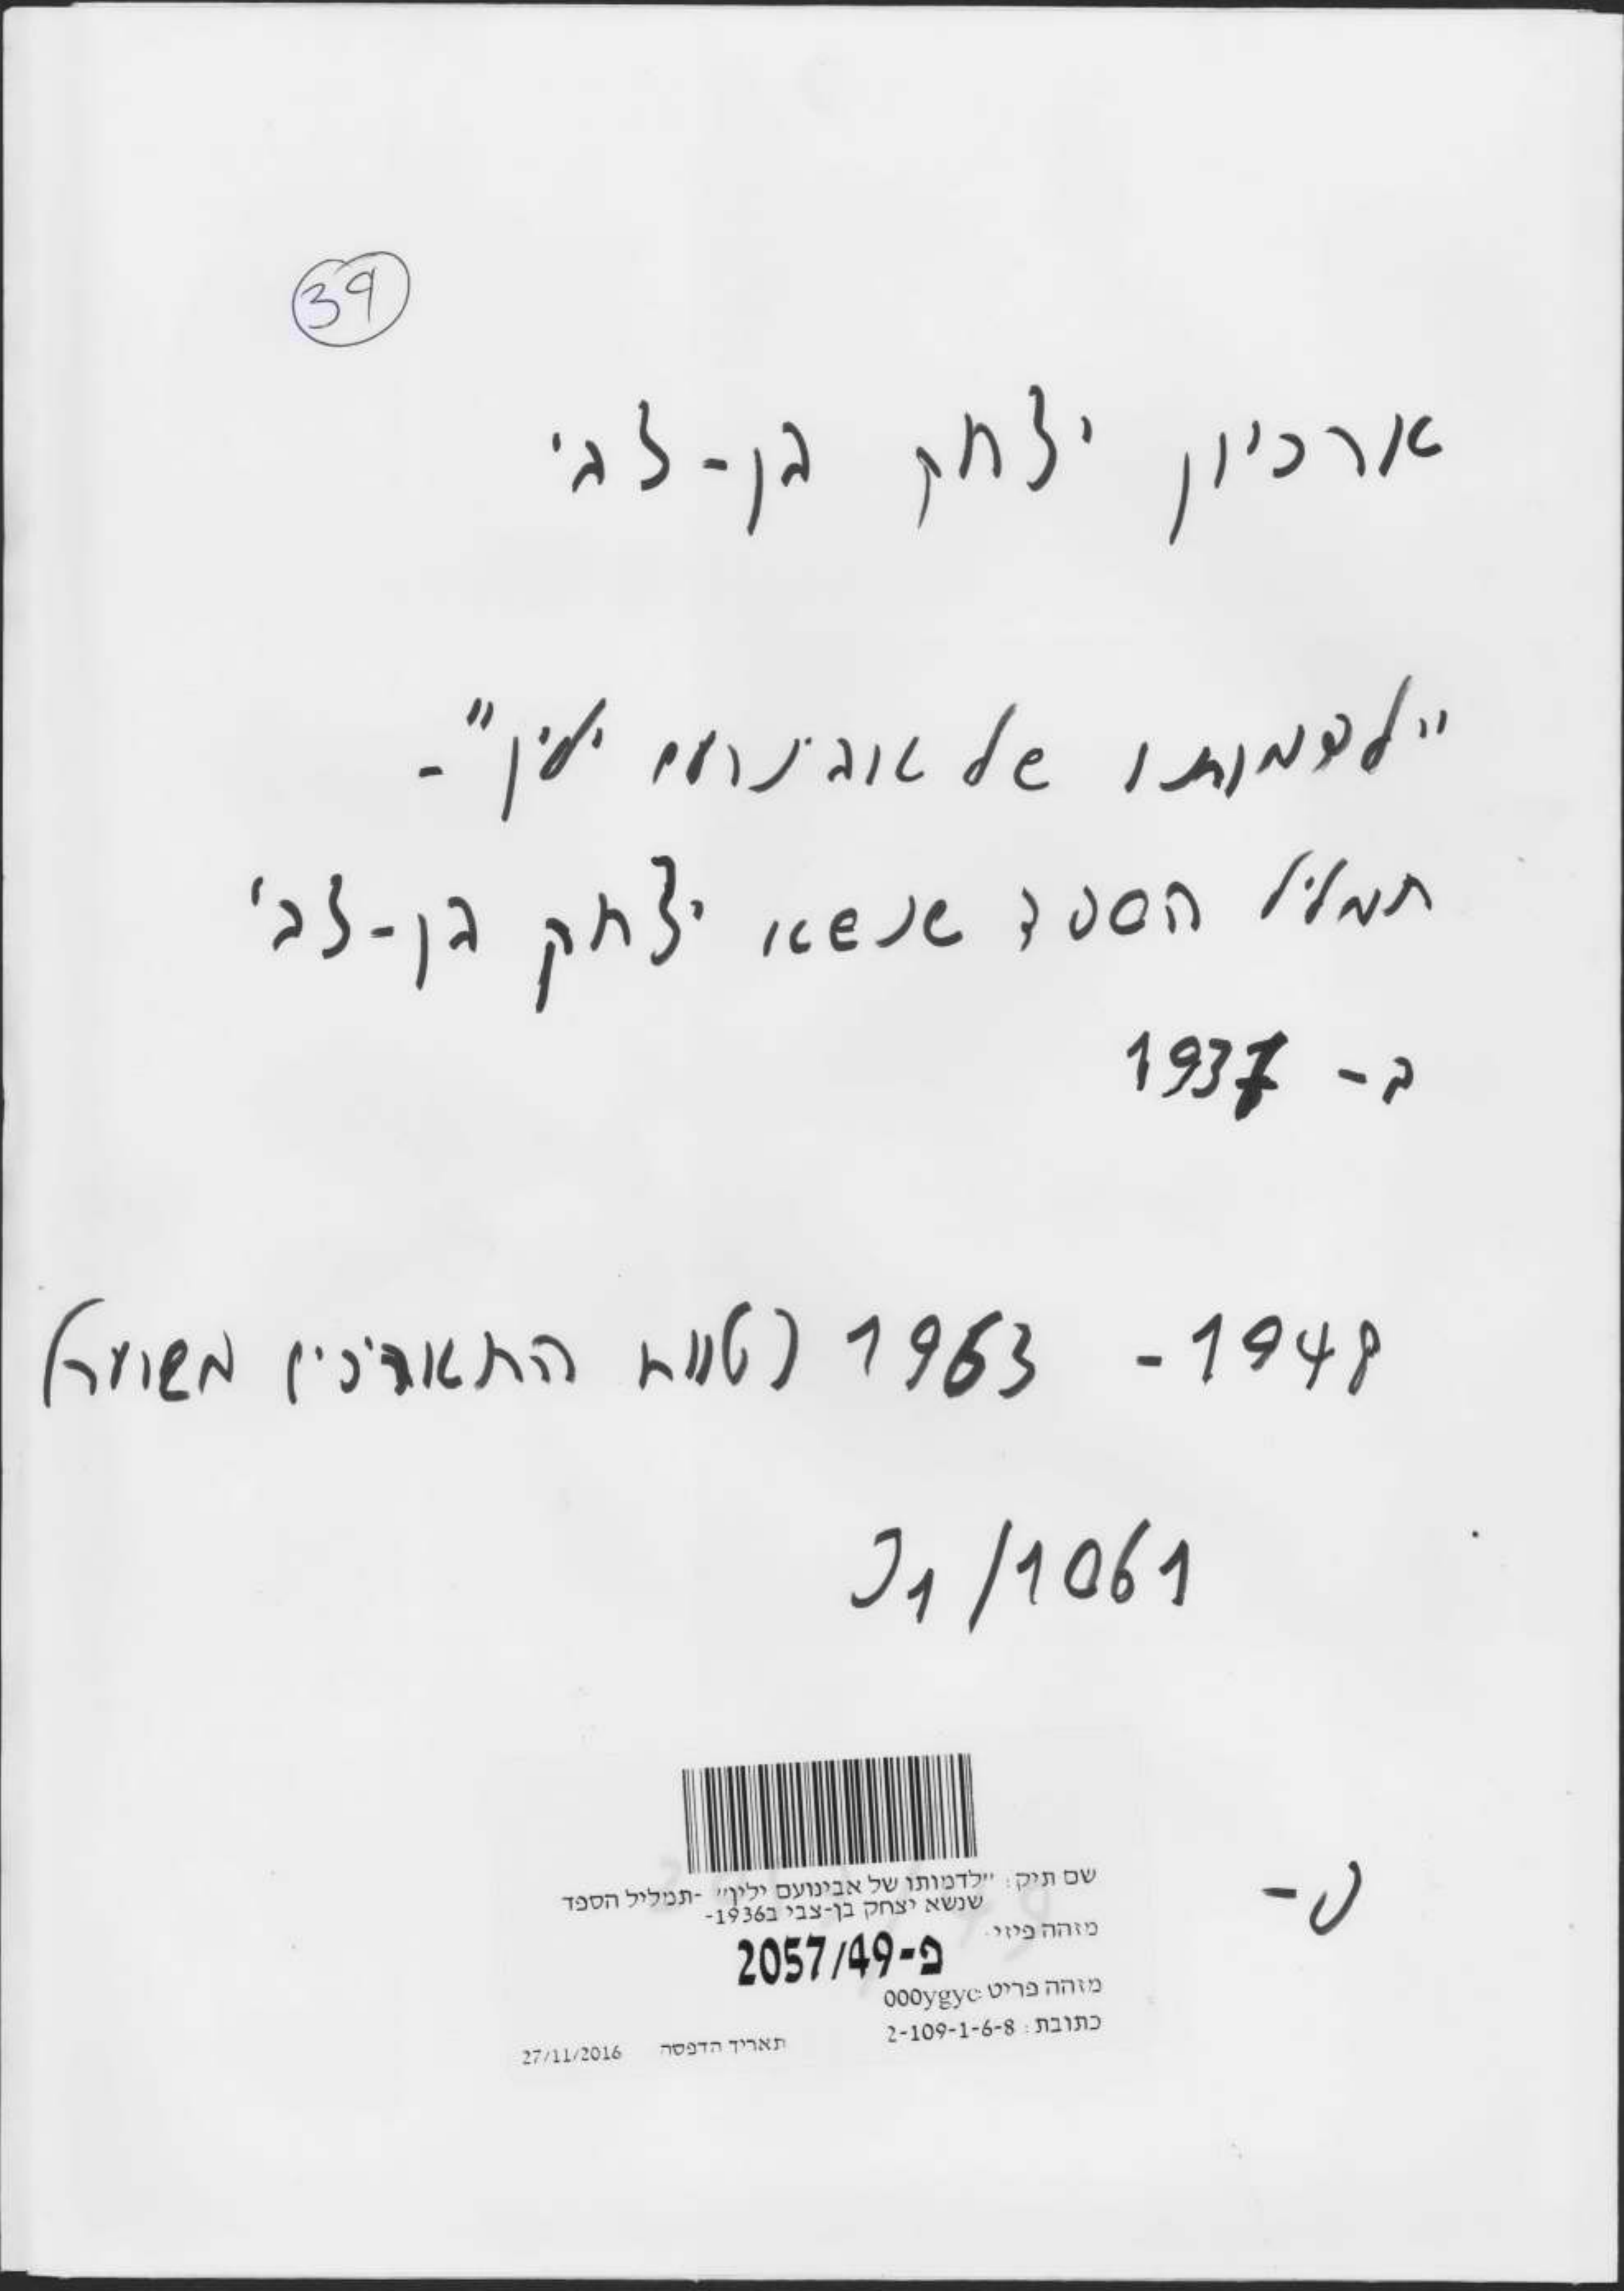 39
ארכיון יצחק בן-צבי
"לדמותו של אבינועם ילין" -
תמליל הספד שנשא יצחק בן-צבי
ב- 1937
1948 - 1963 (טווח התאריכים משוער)
1061/כ1
שם תיק: "לדמותו של אבינועם ילין" -תמליל הספד
שנשא יצחק בן-צבי ב1936-
מזהה פיזי:
פ-2057/49
מזהה פריט: 000ygyc
כתובת: 2-109-1-6-8
תאריך הדפסה 27/11/2016